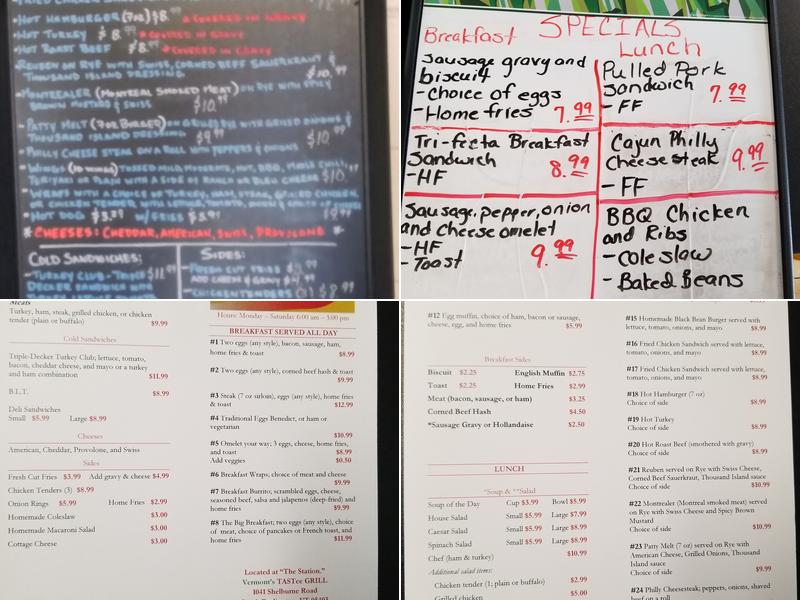 HOT HAMBURGER (7oz) $8.99 * COVERED IN GRAVY
HOT TURKEY $8.99 * COVERED IN GRAVY
HOT ROAST BEEF $8.99 * COVERED IN GRAVY
REUBEN ON RYE WITH SWISS, CORNED BEEF SAUERKRAUT &
THOUSAND ISLAND DRESSING $10.99
MONTREALER (MONTREAL SMOKED MEAT) ON RYE WITH SPICY
BROWN MUSTARD & SWISS $10.99
- PATTY MELT (7oz BURGER) ON GRILLED RYE WITH GRILLED ONIONS &
THOUSAND ISLAND DRESSING $9.99
PHILLY CHEESE STEAK ON A ROLL WITH PEPPERS & ONIONS $10.99
- HOT DOG $3.99 W/FRIES $5.99
* CHEESES: CHEDDAR, AMERICAN, SWISS, PROVOLONE *
COLD SANDWICHES:
- TURKEY CLUB - TRIPLE $11.99
DECKER SANDWICH WITH
SIDES:
FRESH CUT FRIES
ADD CHEESE & GRAVY
CHICKEN TENDERS (3) $8.99
SPECIALS
Breakfast
Sausage gravy and
biscuit
- Choice of eggs
- Home fries 7.99
Tri-fecta Breakfast
Sandwich
- HF 8.99
Sausage, pepper, onion
and cheese omelet
- HF
- Toast 9.99
Lunch
Pulled Pork
Sandwich 7.99
- FF
Cajun Philly
Cheese steak 9.99
- FF
BBQ Chicken
and Ribs
- Coleslaw
- Baked Beans
Meats
Turkey, ham, steak, grilled chicken, or chicken
tender (plain or buffalo) $9.99
Cold Sandwiches
Triple-Decker Turkey Club; lettuce, tomato,
bacon, cheddar cheese, and mayo or a turkey
and ham combination $11.99
B.L.T. $8.99
Deli Sandwiches
Small $5.99 Large $8.99
Cheeses
American, Cheddar, Provolone, and Swiss
Sides
Fresh Cut Fries $3.99 Add gravy & cheese $4.99
Chicken Tenders (3) $8.99
Onion Rings $5.99 Home Fries $2.99
Homemade Coleslaw $3.00
Homemade Macaroni Salad $3.00
Cottage Cheese $3.00
Hours: Monday – Saturday 6:00 am – 3:00 pm
BREAKFAST SERVED ALL DAY
#1 Two eggs (any style), bacon, sausage, ham,
home fries & toast $8.99
#2 Two eggs (any style), corned beef hash & toast
$9.99
#3 Steak (7 oz sirloin), eggs (any style), home fries
& toast $12.99
#4 Traditional Eggs Benedict, or ham or
vegetarian
$10.99
#5 Omelet your way; 3 eggs, cheese, home fries,
and toast $8.99
Add veggies $0.50
#6 Breakfast Wraps; choice of meat and cheese
$9.99
#7 Breakfast Burrito; scrambled eggs, cheese,
seasoned beef, salsa and jalapeños (deep fried) and
home fries $9.99
#8 The Big Breakfast; two eggs (any style), choice
of meat, choice of pancakes or French toast, and
home fries $11.99
Located at "The Station."
Vermont's TASTee GRILL
1041 Shelburne Road
#12 Egg muffin, choice of ham, bacon or sausage,
cheese, egg, and home fries $5.99
Breakfast Sides
Biscuit $2.25 English Muffin $2.75
Toast $2.25 Home Fries $2.99
Meat (bacon, sausage, or ham) $3.25
Corned Beef Hash $4.50
*Sausage Gravy or Hollandaise $2.50
LUNCH
*Soup & **Salad
Soup of the Day Cup $3.99 Bowl $5.99
House Salad Small $5.99 Large $7.99
Caesar Salad Small $5.99 Large $8.99
Spinach Salad Small $5.99 Large $8.99
Chef (ham & turkey) $10.99
Additional salad items:
Chicken tender (1; plain or buffalo) $2.99
Grilled chicken $5.00
#15 Homemade Black Bean Burger served with
lettuce, tomato, onions, and mayo $8.99
#16 Fried Chicken Sandwich served with lettuce,
tomato, onions, and mayo $8.99
#17 Fried Chicken Sandwich served with lettuce,
tomato, onions, and mayo $8.99
#18 Hot Hamburger (7 oz)
Choice of side $8.99
#19 Hot Turkey
Choice of side $8.99
#20 Hot Roast Beef (smothered with gravy)
Choice of side $8.99
#21 Reuben served on Rye with Swiss Cheese,
Corned Beef Sauerkraut, Thousand Island sauce
Choice of side $10.99
#22 Montrealer (Montreal smoked meat) served
on Rye with Swiss Cheese and Spicy Brown
Mustard
Choice of side $10.99
#23 Patty Melt (7 oz) served on Rye with
American Cheese, Grilled Onions, Thousand
Island sauce
Choice of side $9.99
#24 Philly Cheesesteak; peppers, onions, shaved
beef on a roll